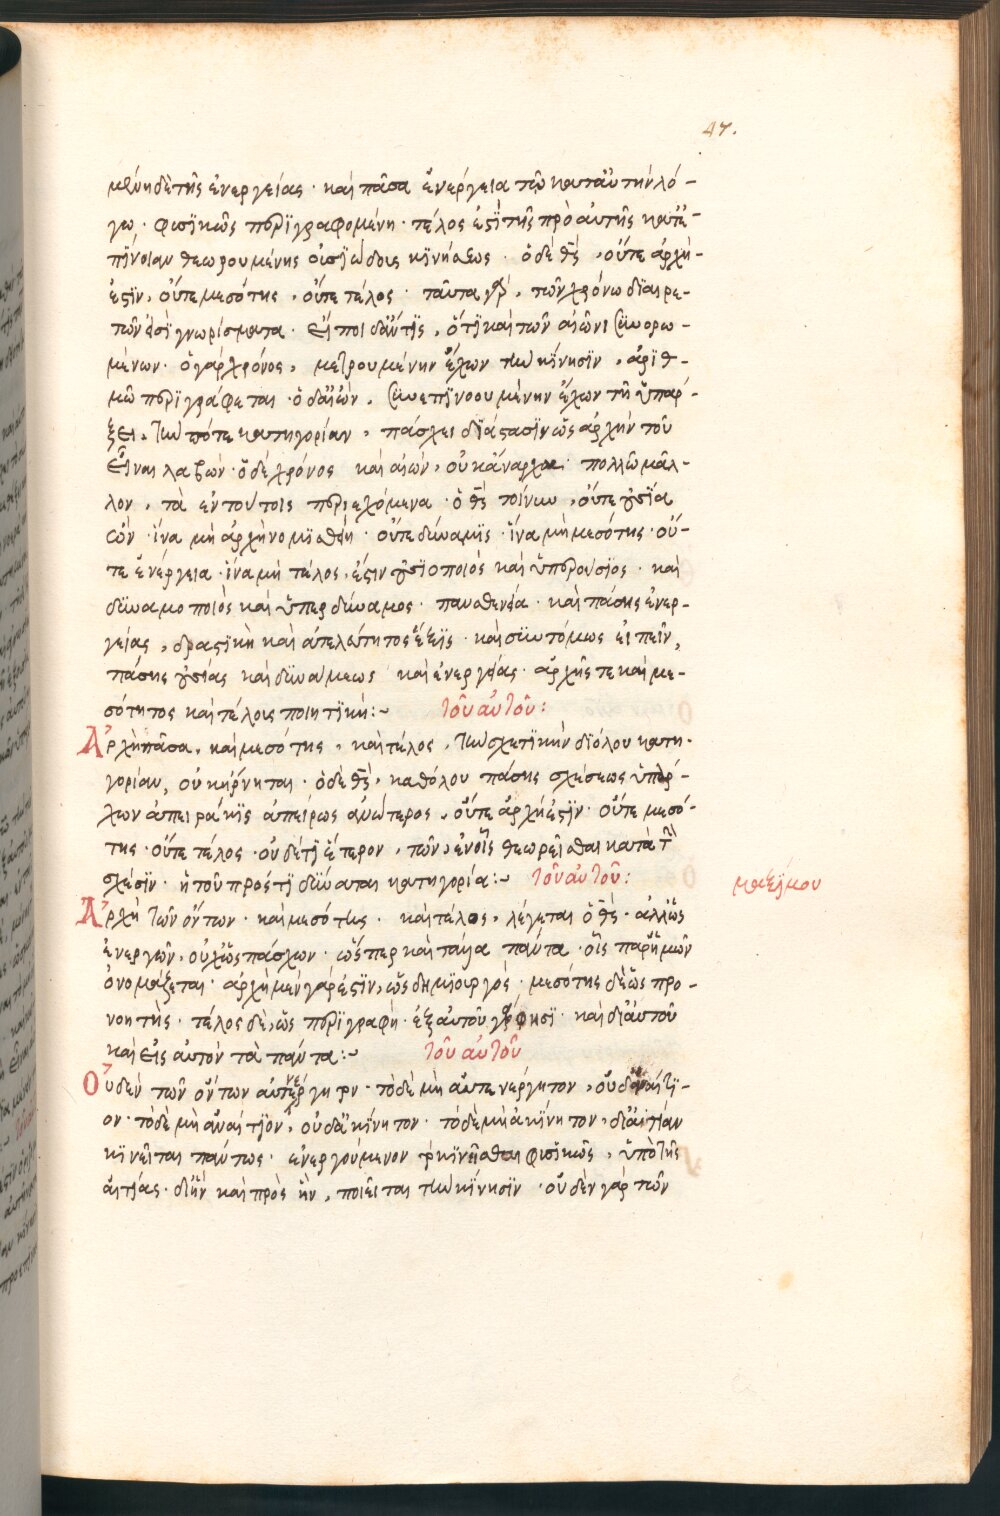 47.
μένη δὲ τῆς ἐνεργείας · καὶ πᾶσα ἐνέργεια τῷ κατ' αὐτὴν λό-
γω · φυσικῶς περιγραφομένη · τέλος ἐστὶ τῆς πρὸ αὐτῆς κατ' ἐ-
πίνοιαν θεωρουμένης οὐσιώδους κινήσεως · ὁ δὲ θς̅, οὔτε ἀρχή
ἐστιν, οὔτε μεσότης, οὔτε τέλος · ταῦτα γὰρ, τῶν χρόνω διαιρε-
τῶν ἐστὶ γνωρίσματα · εἴποι δ' ἄν τις, ὅτι καὶ τῶν αἰῶνι συνορω-
μένων · ὁ γὰρ χρόνος, μετρουμένην ἔχων τὴν κίνησιν, ἀριθ-
μῶ περιγράφεται · ὁ δ' αἰὼν, συνεπινοουμένην ἔχων τῆ ὑπάρ-
ξει, τὴν πότε κατηγορίαν, πάσχει διάστασιν ὡς ἀρχὴν τοῦ
εἶναι λαβών · ὁ δὲ χρόνος καὶ αἰών, οὐκ ἄναρχα · πολλῶ μᾶλ-
λον, τὰ ἐν τούτοις περιεχόμενα · ὁ θς̅ τοίνυν, οὔτε οὐσία
ὢν · ἵνα μὴ ἀρχὴ νομισθῆ · οὔτε δύναμις · ἵνα μὴ μεσότης · οὔ-
τε ἐνέργεια · ἵνα μὴ τέλος, ἐστιν οὐσιοποιὸς καὶ ὑπερούσιος · καὶ
δυναμοποιὸς καὶ ὑπερδύναμος · πανσθενέα · καὶ πάσης ἐνερ-
γείας, δραστικὴ καὶ ἀτελεύτητος ἕξις · καὶ συντόμως εἰπεῖν,
πάσης οὐσίας καὶ δυνάμεως καὶ ἐνεργείας · ἀρχῆς τε καὶ με-
σότητος καὶ τέλους ποιητική :~ τοῦ αὐτοῦ :
Ἀρχὴ πᾶσα, καὶ μεσότης, καὶ τέλος, τὴν σχετικὴν διόλου κατη-
γορίαν, οὐκ ἤρνηται · ὁ δὲ θς̅, καθόλου πάσης σχέσεως ὑπάρ-
χων ἀπειράκις ἀπείρως ἀνώτερος, οὔτε ἀρχή ἐστιν · οὔτε μεσό-
της · οὔτε τέλος · οὐδέ τι ἕτερον, τῶν, ἐν οἷς θεωρεῖσθαι κατὰ τὴν
σχέσιν · ἡ τοῦ πρός τι δύναται κατηγορία :~ τοῦ αὐτοῦ :
μαξίμου
Ἀρχὴ τῶν ὄντων · καὶ μεσότης · καὶ τέλος, λέγεται ὁ θς̅ · ἀλλ' ὡς
ἐνεργῶν, οὐχ ὡς πάσχων · ὥσπερ καὶ τἄλλα πάντα · οἷς παρ' ἡμῶν
ὀνομάζεται · ἀρχὴ μὲν γάρ ἐστιν, ὡς δημιουργός · μεσότης δὲ ὡς προ-
νοητής · τέλος δὲ, ὡς περιγραφή · ἐξ αὐτοῦ γὰρ φησὶ · καὶ δι' αὐτοῦ
καὶ εἰς αὐτὸν τὰ πάντα :~ τοῦ αὐτοῦ
Οὐδὲν τῶν ὄντων αὐτενέργητον · τὸ δὲ μὴ αὐτενέργητον, οὐδ' ἀναίτι-
ον · τὸ δὲ μὴ ἀναίτιον, οὐδ' ἀκίνητον · τὸ δὲ μὴ ἀκίνητον, δι' αἰτίαν
κινεῖται πάντως · ἐνεργούμενον κινεῖσθαι φυσικῶς, ὑπὸ τῆς
αἰτίας · δι' ἣν καὶ πρὸς ἣν, ποιεῖται τὴν κίνησιν · οὐδὲν γὰρ τῶν